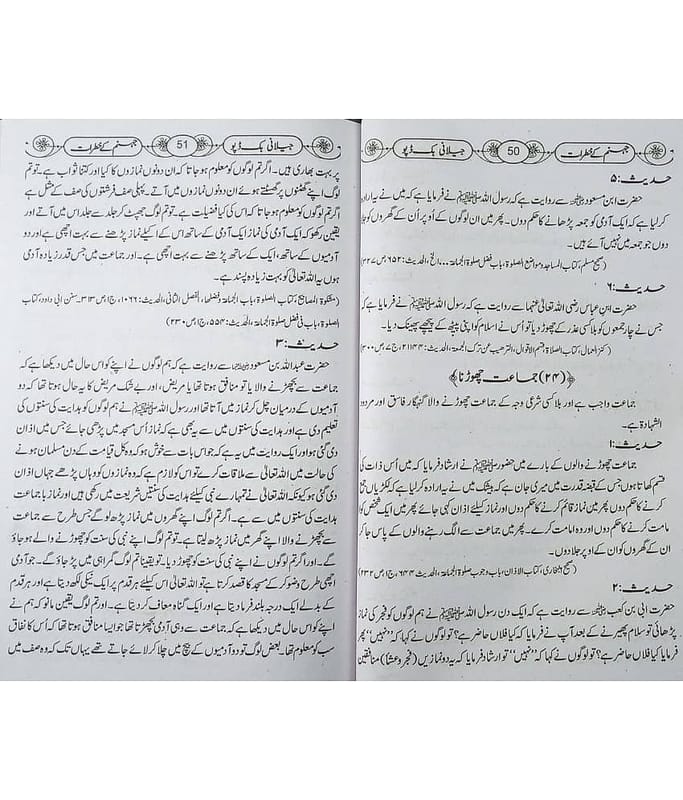 جہنم کے خطرات
50
جیلانی بک ڈپو
حدیث:۵
حضرت ابن مسعود سے روایت ہے کہ رسول اللہ ﷺ نے فرمایا ہے کہ میں نے یہ ارادہ
کر لیا ہے کہ ایک آدمی کو جمعہ پڑھانے کا حکم دوں۔ پھر میں ان لوگوں کے اُوپر اُن کے گھروں کو جلا
دوں جو جمعہ میں نہیں آئے ہیں۔
(صحیح مسلم، کتاب المساجد ومواضع الصلوۃ، باب فضل صلوۃ الجماعۃ...الخ، الحدیث:۶۵۲، ص۳۲۷)
حدیث:۶
حضرت ابن عباس رضی اللہ تعالیٰ عنہما سے روایت ہے کہ رسول اللہ ﷺ نے فرمایا ہے کہ
جس نے چار جمعوں کو بلا کسی عذر کے چھوڑ دیا تو اُس نے اسلام کو اپنی پیٹھ کے پیچھے پھینک دیا۔
(کنز العمال، کتاب الصلاۃ، قسم الاقوال، الترھیب عن ترک الجمعۃ، الحدیث:۲۱۱۴۳، ج۷، ص۳۰۰)
﴿(۲۴) جماعت چھوڑنا﴾
جماعت واجب ہے اور بلا کسی شرعی وجہ کے جماعت چھوڑنے والا گنہگار فاسق اور مردود
الشہادۃ ہے۔
حدیث:۱
جماعت چھوڑنے والوں کے بارے میں حضور ﷺ نے ارشاد فرمایا کہ میں اُس ذات کی
قسم کھاتا ہوں جس کے قبضہ قدرت میں میری جان ہے کہ بیشک میں نے یہ ارادہ کر لیا ہے کہ لکڑیاں جمع
کرنے کا حکم دوں پھر میں نماز قائم کرنے کا حکم دوں اور نماز کیلئے اذان کہی جائے پھر میں ایک شخص کو
امامت کرنے کا حکم دوں اور وہ امامت کرے۔ پھر میں جماعت سے الگ رہنے والوں کے پاس جا کر
ان کے گھروں کو ان کے اوپر جلا دوں۔
(صحیح البخاری، کتاب الاذان، باب وجوب صلوۃ الجماعۃ، الحدیث ۶۴۴، ج۱، ص۲۳۲)
حدیث:۲
حضرت ابی بن کعب سے روایت ہے کہ ایک دن رسول اللہ ﷺ نے ہم لوگوں کو فجر کی نماز
پڑھائی تو سلام پھیرنے کے بعد آپ نے فرمایا کہ کیا فلاں حاضر ہے؟ تو لوگوں نے کہا کہ ’’نہیں‘‘ پھر
فرمایا کیا فلاں حاضر ہے؟ تو لوگوں نے کہا کہ ’’نہیں‘‘ تو ارشاد فرمایا کہ یہ دو نمازیں (فجر و عشا) منافقین
جہنم کے خطرات
51
جیلانی بک ڈپو
پر بہت بھاری ہیں۔ اگر تم لوگوں کو معلوم ہو جاتا کہ ان دونوں نمازوں کا کیا اور کتنا ثواب ہے تو تم
لوگ اپنے گھٹنوں پر گھسٹتے ہوئے ان دونوں نمازوں میں آتے۔ پہلی صف فرشتوں کی صف کے مثل ہے
اگر تم لوگوں کو معلوم ہو جاتا کہ اس کی کیا فضیلت ہے۔ تو تم لوگ جھپٹ کر جلد سے جلد اس میں آتے اور
یقین رکھو کہ ایک آدمی کی نماز ایک آدمی کے ساتھ اس کے اکیلے نماز پڑھنے سے بہت اچھی ہے اور دو
آدمیوں کے ساتھ، ایک کے ساتھ پڑھنے سے بہت اچھی ہے۔ اور جماعت میں جس قدر زیادہ آدمی
ہوں یہ اللہ تعالیٰ کو بہت زیادہ پسند ہے۔
(مشکوۃ المصابیح، کتاب الصلوۃ، باب الجماعۃ وفضلھا، الفصل الثانی، الحدیث:۱۰۶۶، ج۱ص۳۱۳۔ سنن ابی داود، کتاب
الصلوۃ، باب فی فضل صلوۃ الجماعۃ، الحدیث:۵۵۴، ج۱، ص۲۳۰)
حدیث:۳
حضرت عبد اللہ بن مسعود سے روایت ہے کہ ہم لوگوں نے اپنے کو اس حال میں دیکھا ہے کہ
جماعت سے بچھڑنے والا یا تو منافق ہوتا تھا یا مریض، اور بے شک مریض کا یہ حال ہوتا تھا کہ دو
آدمیوں کے درمیان چل کر نماز میں آتا تھا اور رسول اللہ ﷺ نے ہم لوگوں کو ہدایت کی سنتوں کی
تعلیم دی ہے اور ہدایت کی سنتوں میں سے یہ بھی ہے کہ نماز اُس مسجد میں پڑھی جائے جس میں اذان
دی گئی ہو اور ایک روایت میں یہ ہے کہ جو اس بات سے خوش ہو کہ وہ کل قیامت کے دن مسلمان ہونے
کی حالت میں اللہ تعالیٰ سے ملاقات کرے تو اس کو لازم ہے کہ وہ نمازوں کو وہاں پڑھے جہاں اذان
دی گئی ہو کیونکہ اللہ تعالیٰ نے تمہارے نبی کیلئے ہدایت کی سنتیں شریعت میں رکھی ہیں اور نماز با جماعت
ہدایت کی سنتوں میں سے ہے۔ اگر تم لوگ اپنے گھروں میں نماز پڑھ لو گے جس طرح سے جماعت
سے بچھڑنے والا اپنے گھر میں نماز پڑھ لیتا ہے۔ تو تم لوگ اپنے نبی کی سنت کو چھوڑنے والے ہو جاؤ
گے۔ اور اگر تم لوگوں نے اپنے نبی کی سنت کو چھوڑ دیا۔ تو یقینا تم لوگ گمراہی میں پڑ جاؤ گے۔ جو آدمی
اچھی طرح وضو کر کے مسجد کا قصد کرتا ہے تو اللہ تعالیٰ اس کیلئے ہر قدم پر ایک نیکی لکھ دیتا ہے اور ہر قدم
کے بدلے ایک درجہ بلند فرما دیتا ہے اور ایک گناہ معاف کر دیتا ہے۔ اور تم لوگ یقین مانو کہ ہم نے
اپنے کو اس حال میں دیکھا ہے کہ جماعت سے وہی آدمی بچھڑتا تھا جو ایسا منافق ہوتا تھا کہ اُس کا نفاق
سب کو معلوم تھا۔ بعض لوگ تو دو آدمیوں کے بیچ میں چلا کر لائے جاتے تھے یہاں تک کہ وہ صف میں